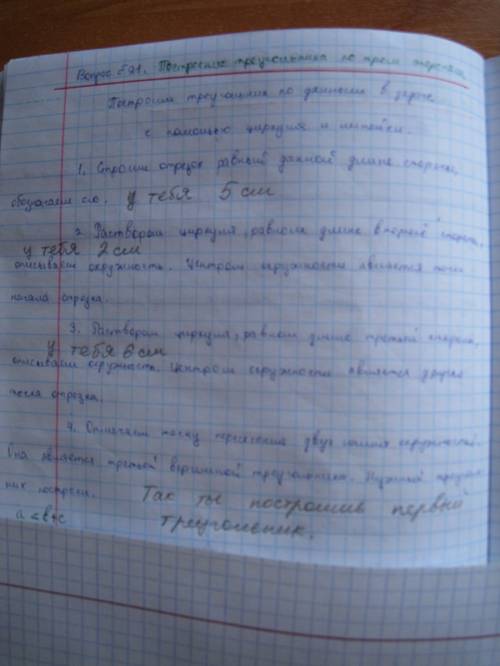 Вопрос №21. Построение треугольника по трем сторонам
Построим треугольник по данным в задаче
с помощью циркуля и линейки.
1. Строим отрезок равный данной длине стороны,
обозначаем его. у тебя 5 см
2. Раствором циркуля, равным длине второй стороны,
у тебя 2 см
описываем окружность. Центром окружности является точка
начала отрезка.
3. Раствором циркуля, равным длине третьей стороны,
у тебя 6 см
описываем окружность. Центром окружности является другая
точка отрезка.
4. Отмечаем точку пересечения двух окружностей.
Она является третьей вершиной треугольника. Нужный треуголь
ник построен. Так ты построишь первый
a < b+c треугольник.